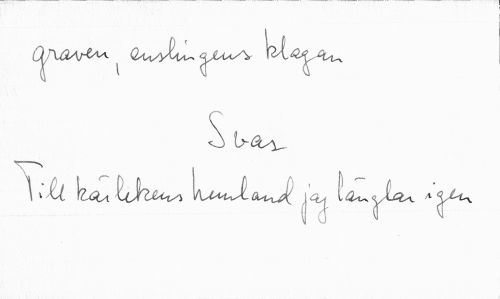 graven, enslingens klagan
Svar
Till kärlekens hemland jag längtar igen